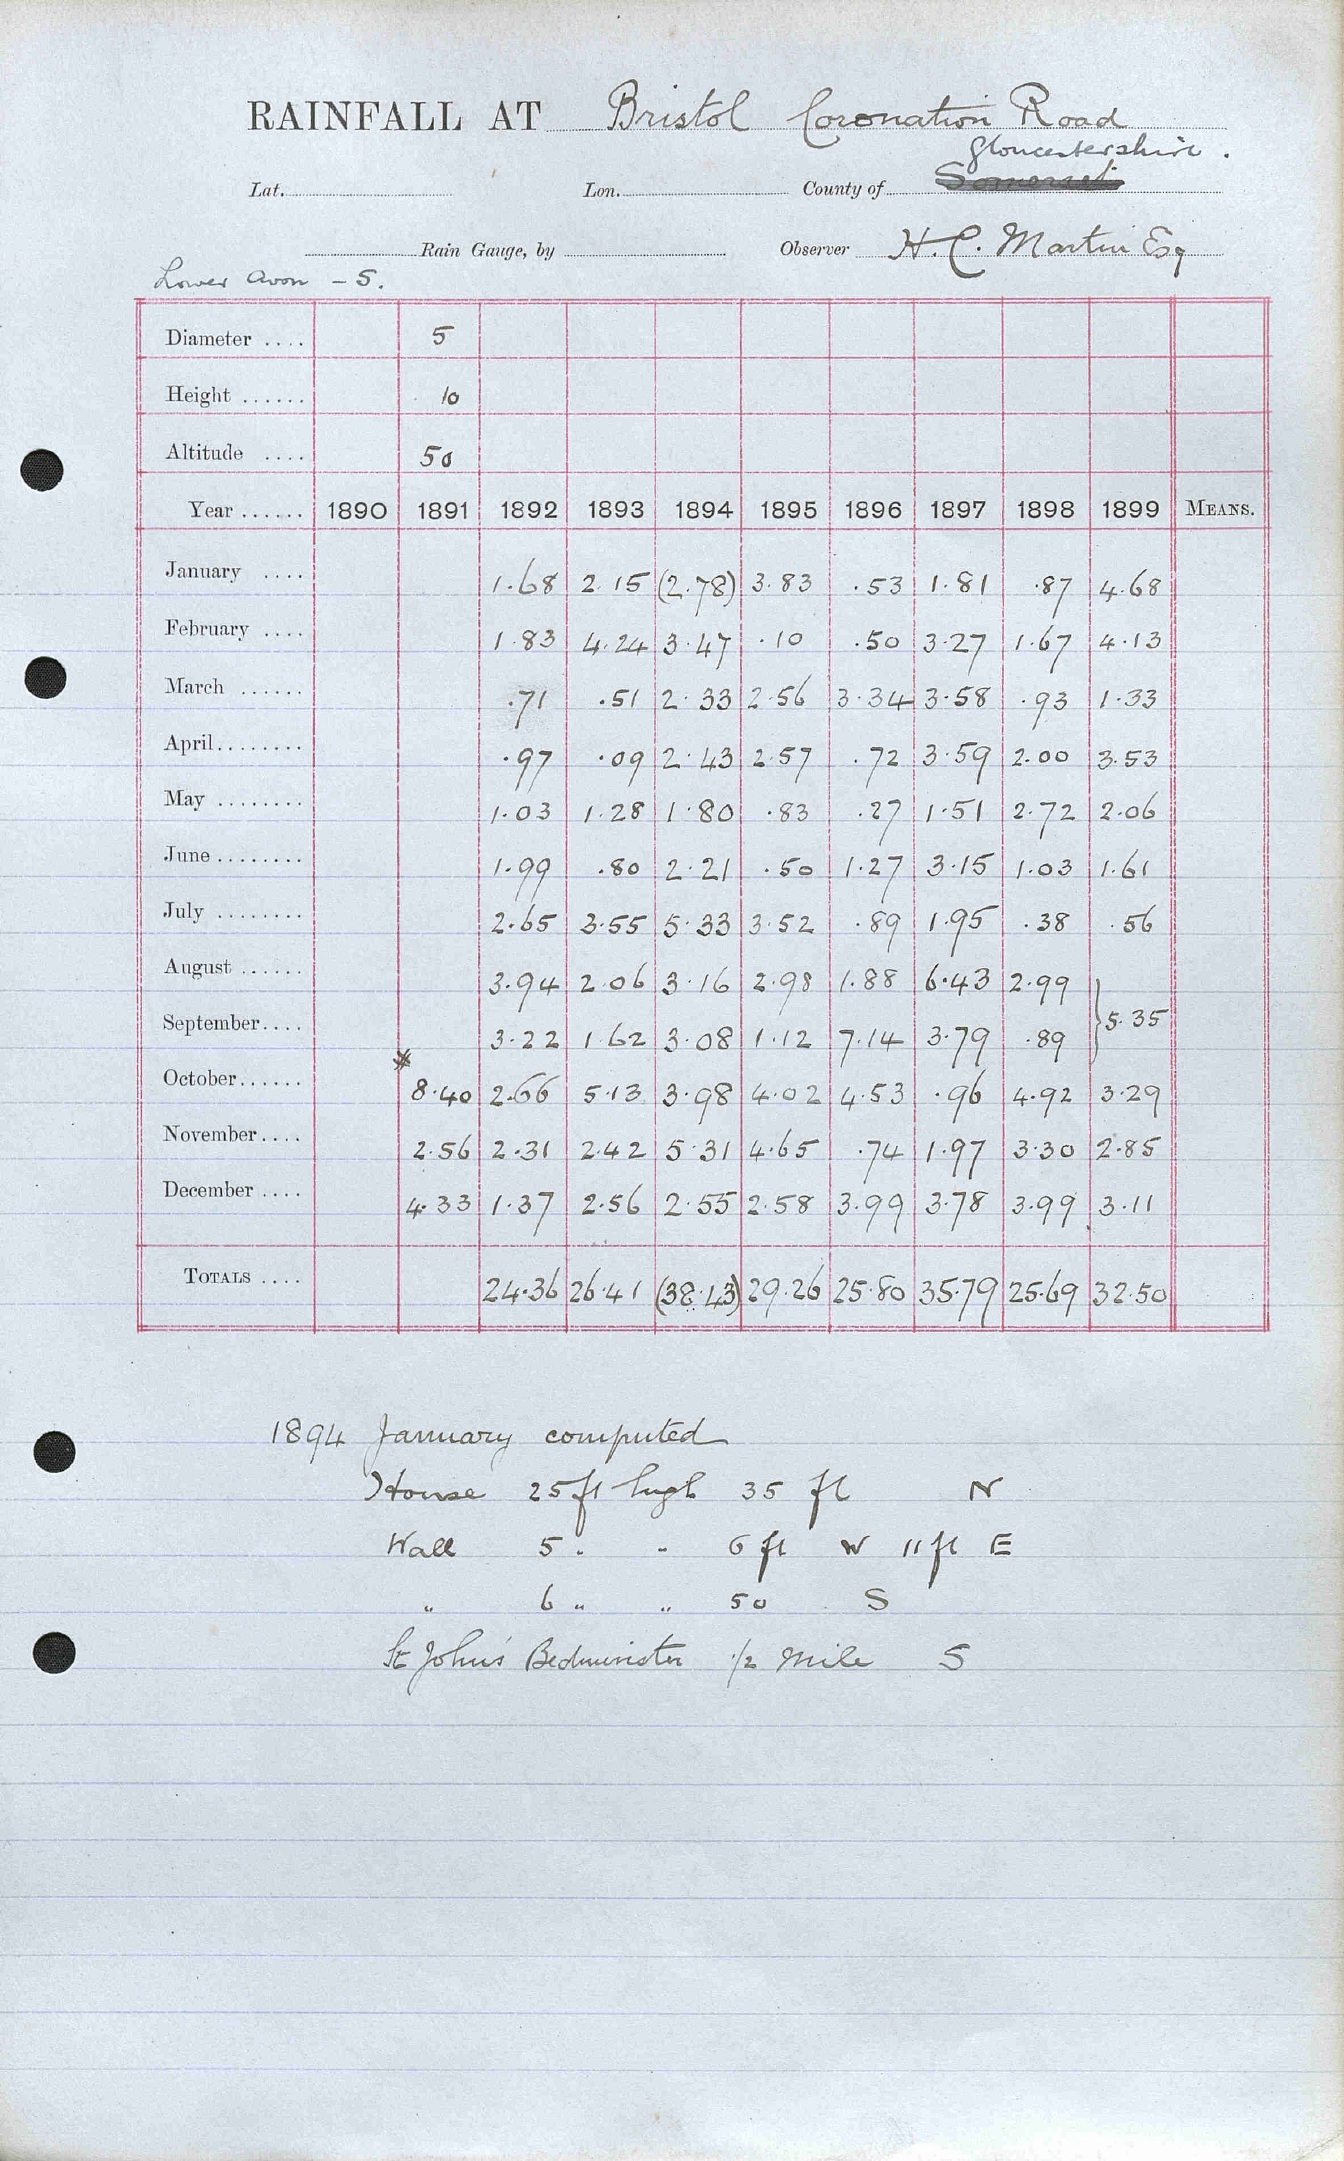 RAINFALL AT Bristol Coronation Road
Gloucestershire.
Lat. Lon. County of Somerset
Rain Gauge, by Observer H. C. Martin Esq
Lower Avon - S.
Diameter .... 5
Height ...... 10
Altitude .... 50
Year ...... 1890 1891 1892 1893 1894 1895 1896 1897 1898 1899 MEANS.
January .... 1.68 2.15 (2.78) 3.83 .53 1.81 .87 4.68
February .... 1.83 4.24 3.47 .10 .50 3.27 1.67 4.13
March ...... .71 .51 2.33 2.56 3.34 3.58 .93 1.33
April........ .97 .09 2.43 2.57 .72 3.59 2.00 3.53
May ........ 1.03 1.28 1.80 .83 .27 1.51 2.72 2.06
June ........ 1.99 .80 2.21 .50 1.27 3.15 1.03 1.61
July ........ 2.65 3.55 5.33 3.52 .89 1.95 .38 .56
August ...... 3.94 2.06 3.16 2.98 1.88 6.43 2.99
September.... 3.22 1.62 3.08 1.12 7.14 3.79 .89 } 5.35
October...... * 8.40 2.66 5.13 3.98 4.02 4.53 .96 4.92 3.29
November.... 2.56 2.31 2.42 5.31 4.65 .74 1.97 3.30 2.85
December .... 4.33 1.37 2.56 2.55 2.58 3.99 3.78 3.99 3.11
TOTALS .... 24.36 26.41 (38.43) 29.26 25.80 35.79 25.69 32.50
1894 January computed
House 25 ft high 35 ft N
Wall 5 " " 6 ft W 11 ft E
" 6 " " 50 S
St John's Bedminster 1/2 Mile S